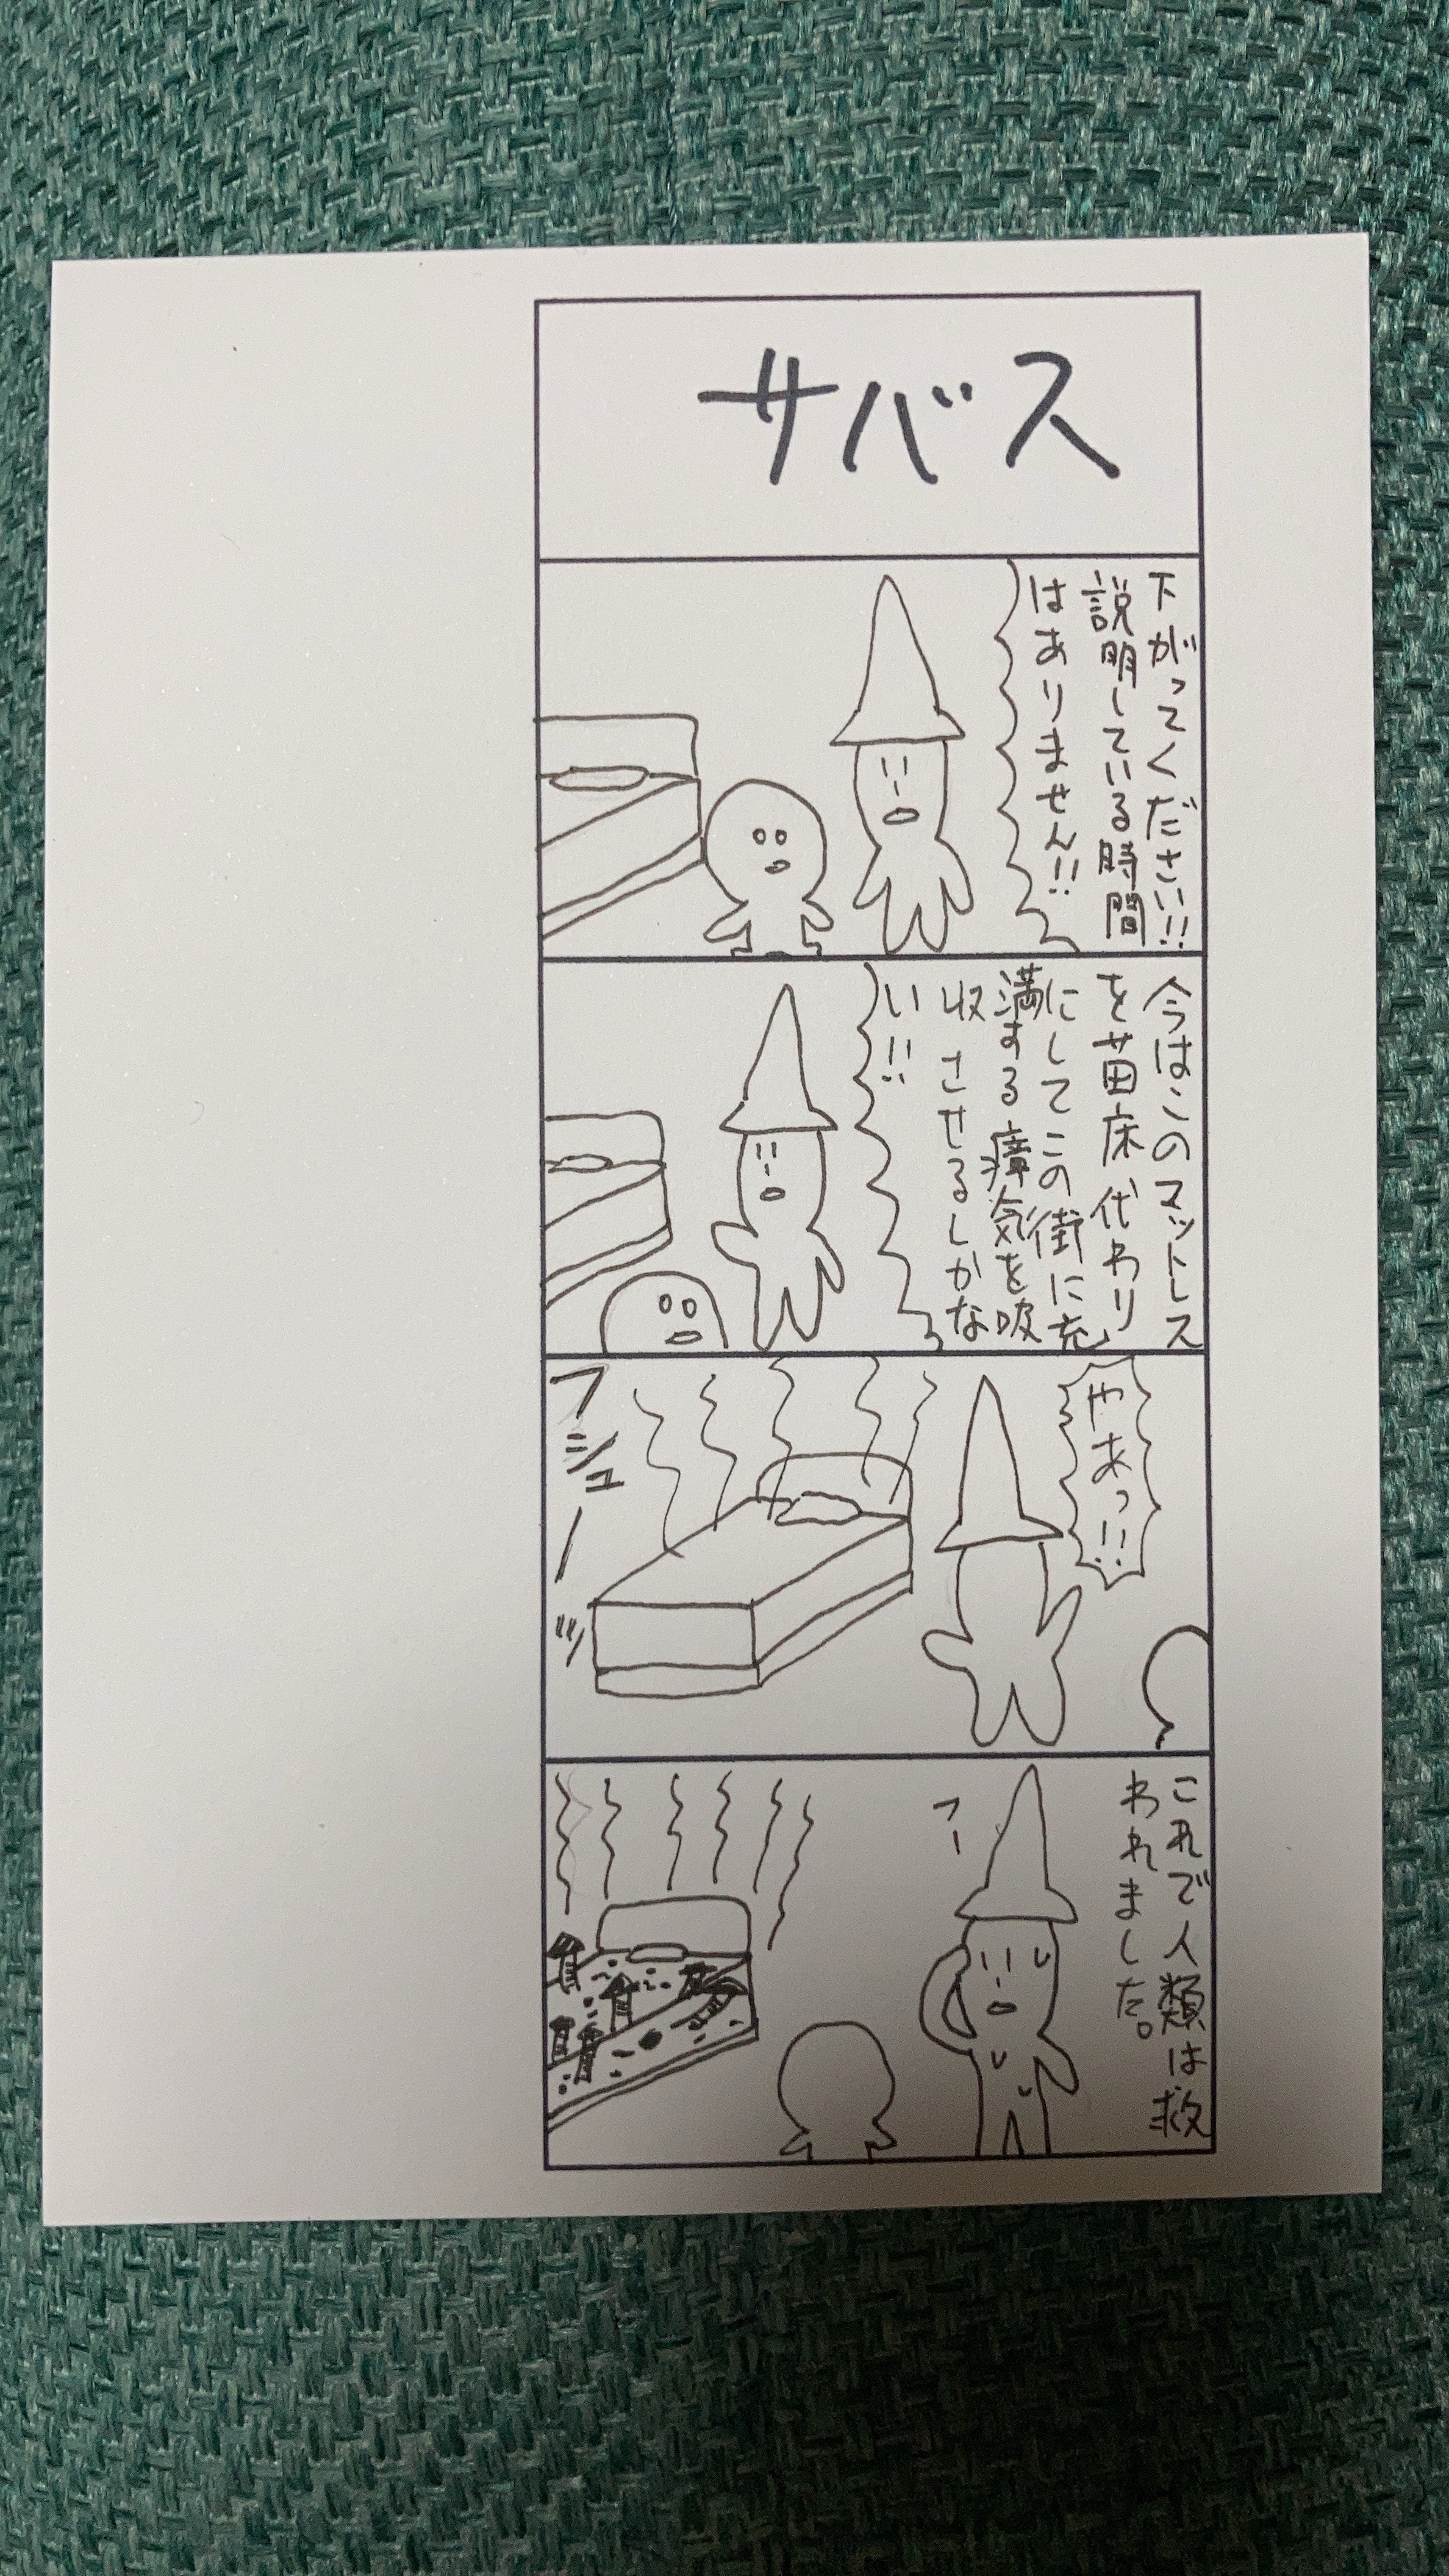 サバス
下がってください!!
説明している時間
はありません!!
今はこのマットレス
を苗床代わり
にしてこの街に充
満する瘴気を吸
収させるしかな
い!!
やあっ!!
フシューッ
これで人類は救
われました。
フー